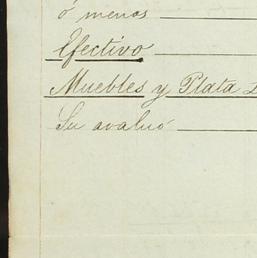 ó menos
Efectivo
Muebles y Plata
Su avaluó